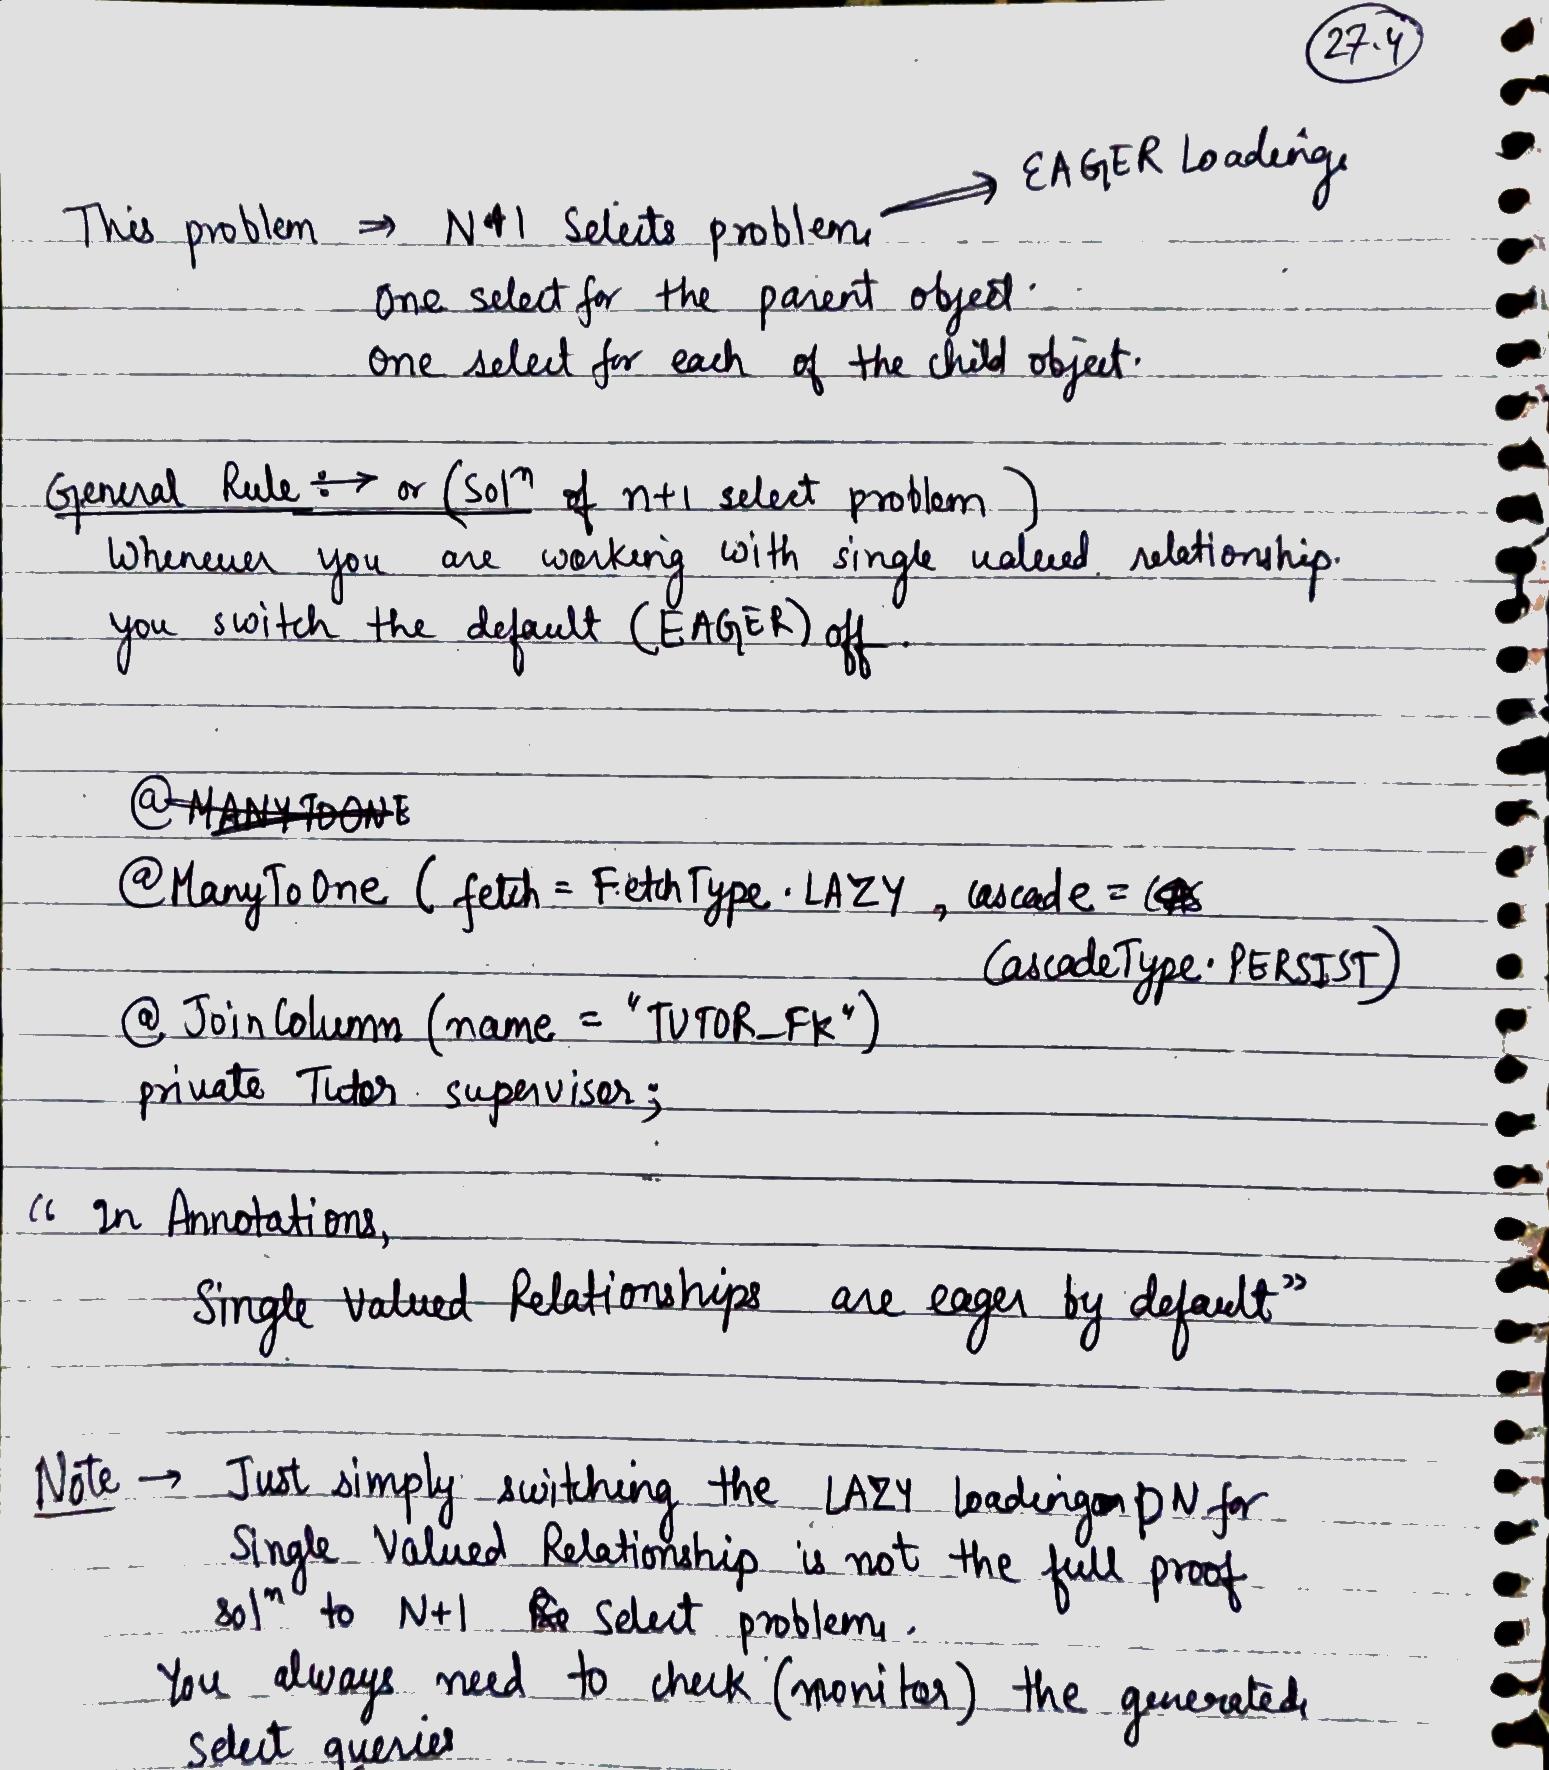 27.4
EAGER Loading
This problem ⇒ N+1 Selects problem
One select for the parent object.
One select for each of the child object.
General Rule ÷→ or (Solⁿ of n+1 select problem)
Whenever you are working with single valued relationship.
you switch the default (EAGER) off.
@MANYTOONE
@ManyToOne ( fetch = FetchType.LAZY , cascade =
CascadeType.PERSIST)
@ JoinColumn (name = "TUTOR_FK")
private Tutor supervisor;
“ In Annotations,
Single Valued Relationships are eager by default”
Note → Just simply switching the LAZY loading ON for
Single Valued Relationship is not the full proof
solⁿ to N+1 Select problem.
You always need to check (monitor) the generated
select queries